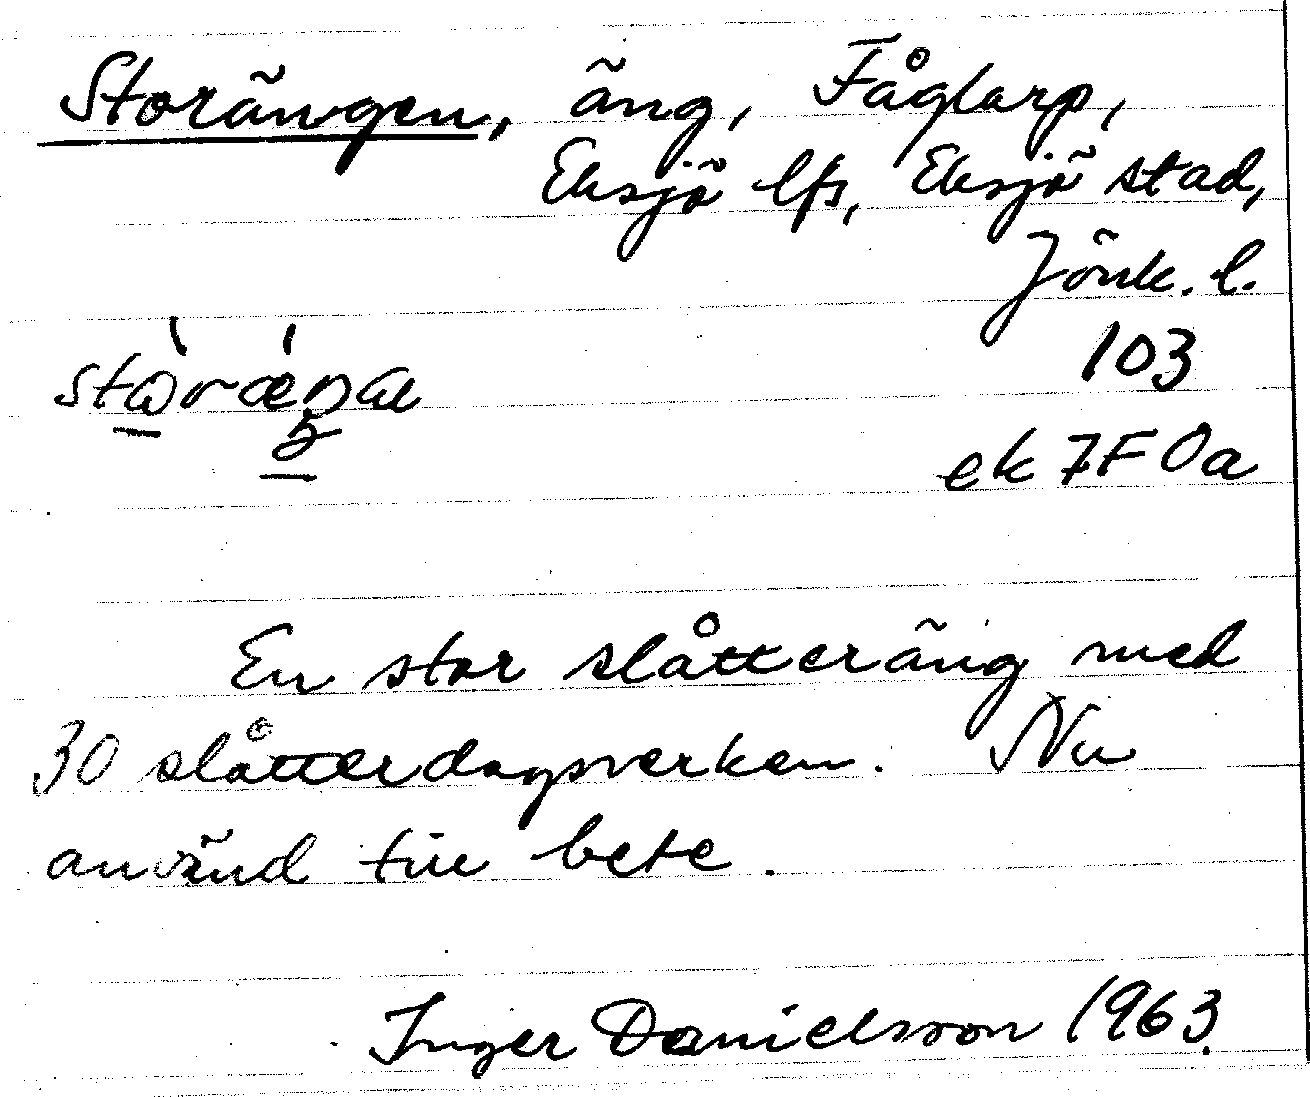 Storängen, äng, Fåglarp,
Eksjö lfs, Eksjö stad,
Jönk. l.
103
ek 7F 0a
En stor slåtteräng med
30 slåtterdagsverken. Nu
använd till bete.
Inger Danielsson 1963.